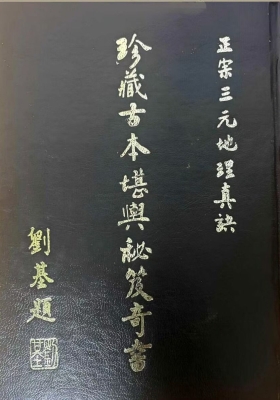 正宗三元地理真訣
珍藏古本堪輿秘笈奇書
劉基題